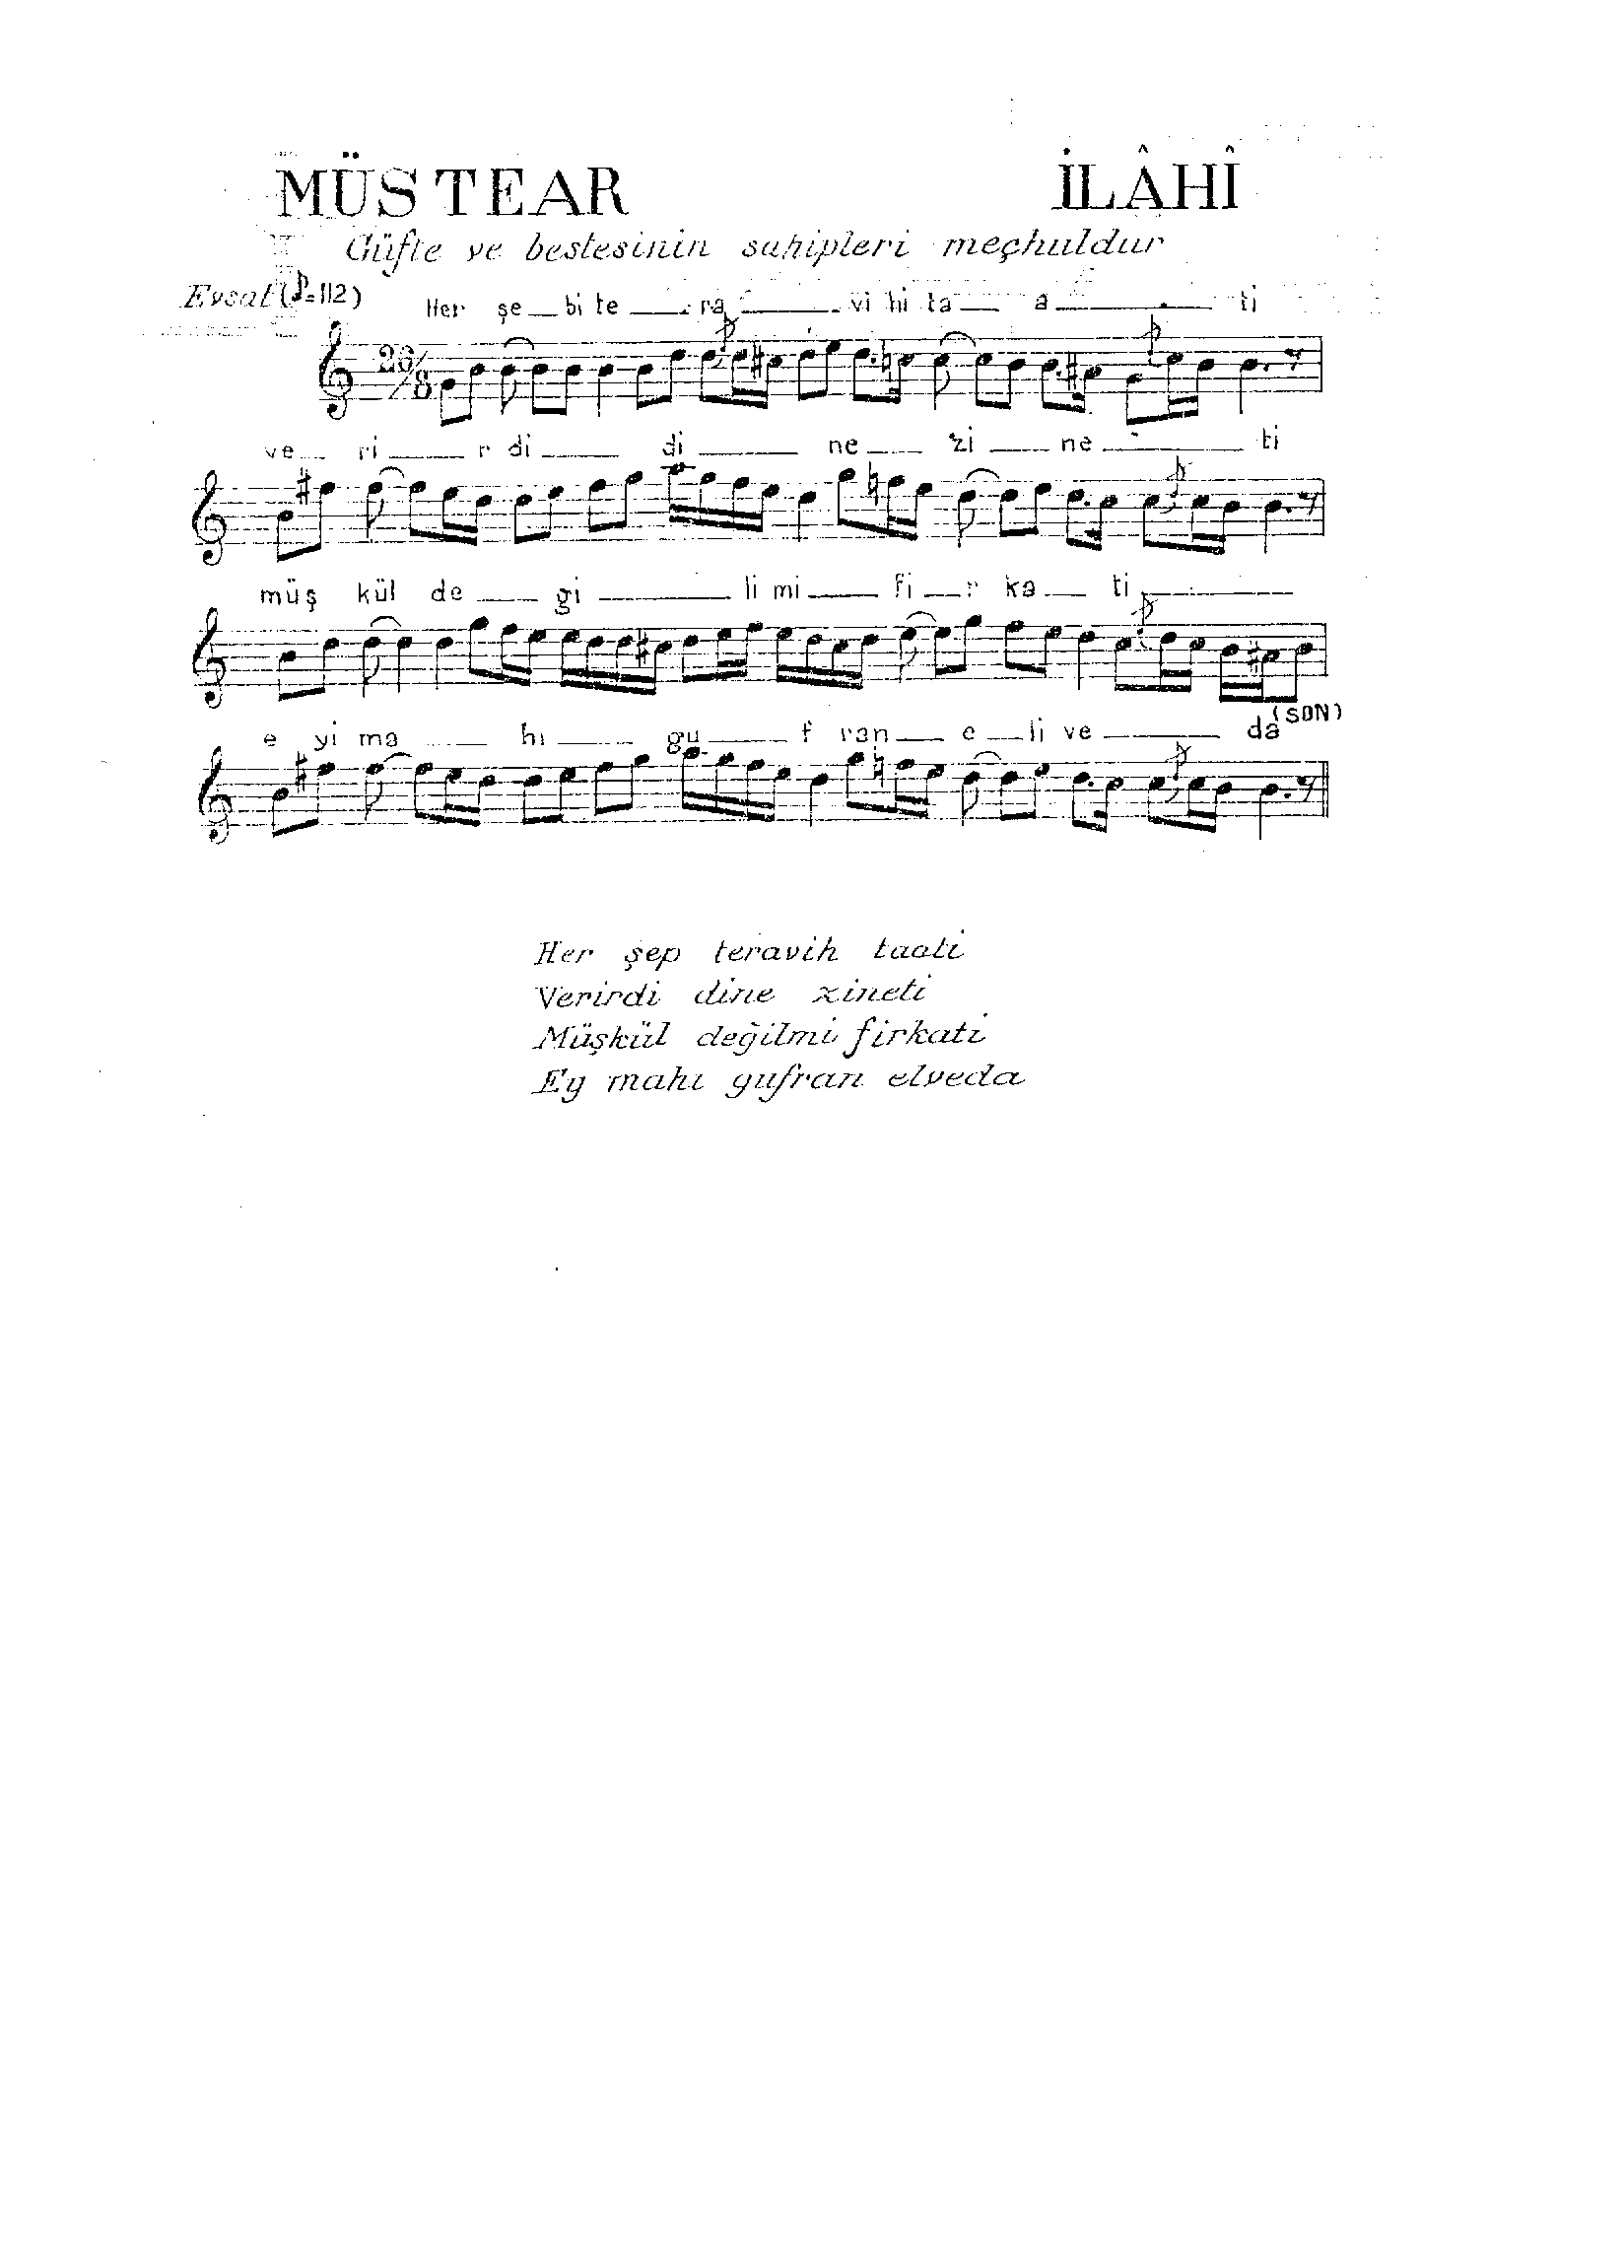 MÜSTEAR İLÂHÎ
Güfte ve bestesinin sahipleri meçhuldur
Evsat (♪=112)
Her şe__bi te ___ ra ______ vi hi ta__ a ________ ti
26/8
ve__ ri ____ r di ____ di _____ ne ___ zi ___ ne _______ ti
müş kül de ___ gi ______ li mi ___ fi __ r ka __ ti ________
e yi ma ____ hi ____ gu ____ f ran __ e __ li ve ______ da
(SON)
Her şep teravih taati
Verirdi dine zineti
Müşkül değilmi firkati
Ey mahı gufran elveda